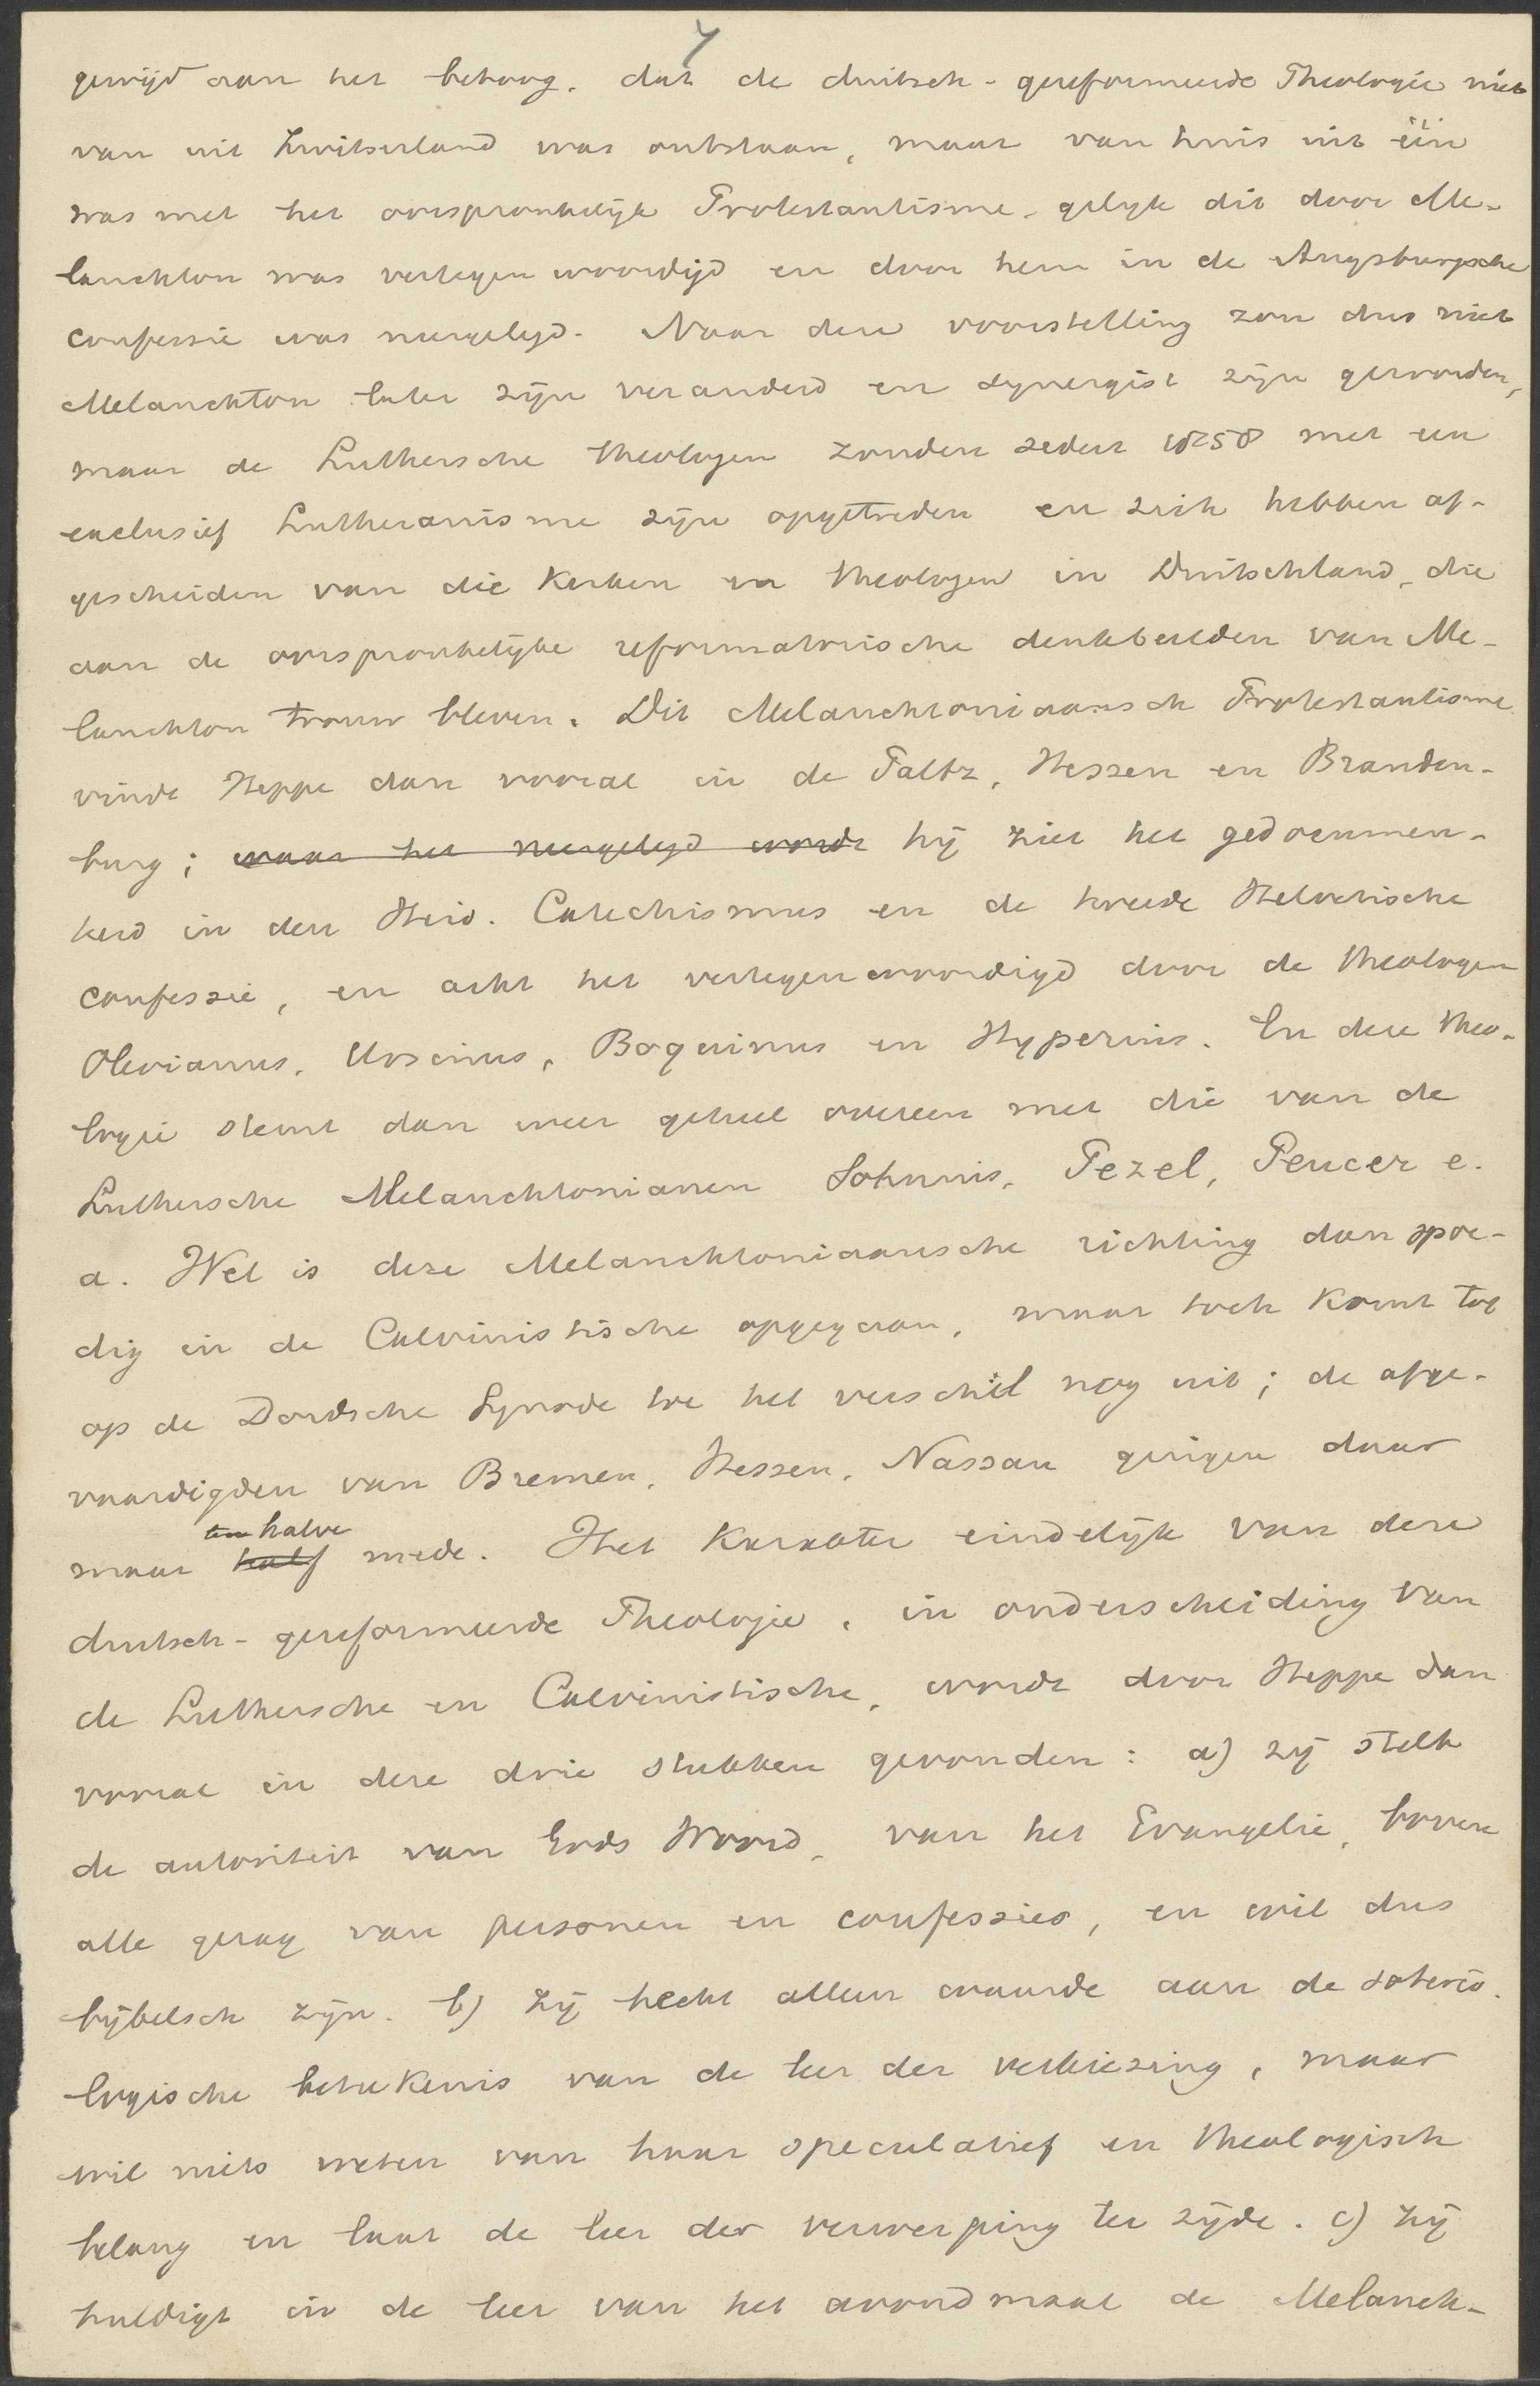 7
gewijd aan het betoog, dat de duitsch-gereformeerde Theologie niet
van uit Zwitserland was ontstaan, maar van huis uit één
was met het oorspronkelijk Protestantisme, gelijk dit door Me-
lanchton was vertegenwoordigd en door hem in de Augsburgsche
confessie was neergelegd. Naar deze voorstelling zou dus niet
Melanchton later zijn veranderd en synergist zijn geworden,
maar de Luthersche theologen zouden sedert 1858 met een
exclusief Lutheranisme zijn opgetreden en zich hebben af-
gescheiden van die Kerken en theologen in Duitschland, die
aan de oorspronkelijke reformatorische denkbeelden van Me-
lanchton trouw bleven. Dit Melanchtoniaansch Protestantisme
vindt Heppe dan vooral in de Paltz, Hessen en Branden-
burg; waar het neergelegd wordt hij ziet het gedocumen-
teerd in den Heid. Catechismus en de tweede Helvetische
confessie, en acht het vertegenwoordigd door de theologen
Olevianus, Ursinus, Boquinus en Hyperius. En deze theo-
logie stemt dan weer geheel overeen met die van de
Luthersche Melanchtonianen Sohnius, Pezel, Peucer e.
a. Wel is deze Melanchtoniaansche richting dan spoe-
dig in de Calvinistische opgegaan, maar toch komt tot
op de Dordsche Synode toe het verschil nog uit; de afge-
vaardigden van Bremen, Hessen, Nassau gingen daar
ten halve
maar half mede. Het Karakter eindelijk van deze
duitsch-gereformeerde Theologie, in onderscheiding van
de Luthersche en Calvinistische, wordt door Heppe dan
vooral in deze drie stukken gevonden: a) zij stelt
de autoriteit van Gods Woord, van het Evangelie, boven
alle gezag van personen en confessies, en wil dus
bijbelsch zijn. b) Zij hecht alleen waarde aan de soterio-
logische beteekenis van de leer der verkiezing, maar
wil niets weten van haar speculatief en theologisch
belang en laat de leer der verwerping ter zijde. c) Zij
huldigt in de leer van het avondmaal de Melanch-